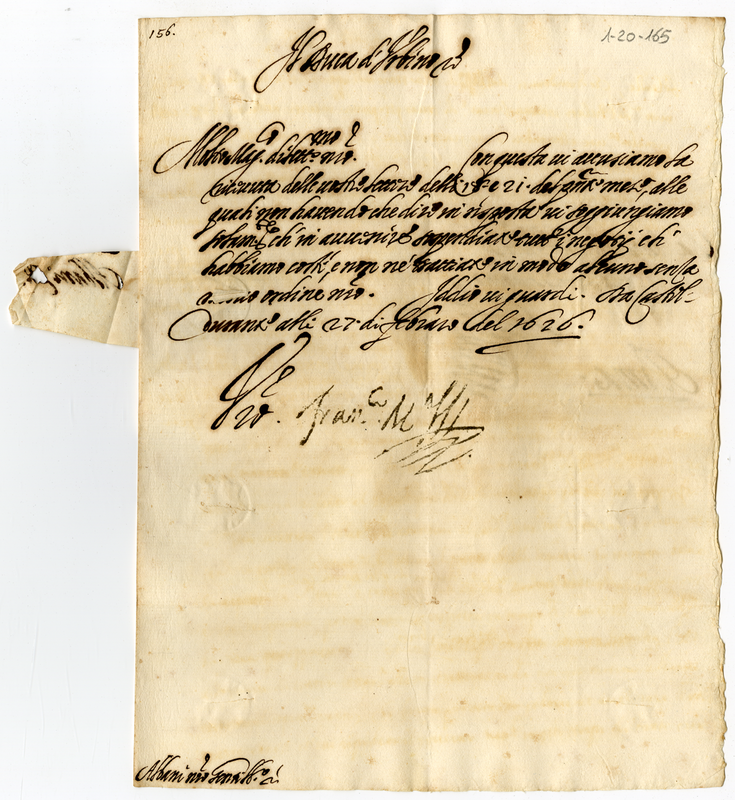 156.
1-20-165
Il Duca di Urbino
Molto Mag.co dilett.mo n̄ro. Con questa vi accusiamo la
ricevuta delle vostre lettere delli 18 e 21. del pn̄te mese, alle
quali non havendo che dire in risposta vi soggiungiamo
solam.te ch' in avvenire negotij ch'
habbiamo costì, e non ne trattiate in modo alcuno senza
ordine n̄ro. Iddio vi guardi. Da Castel-
durante alli 27 di febraro del 1626.
Fran.co M
Albani n̄ro